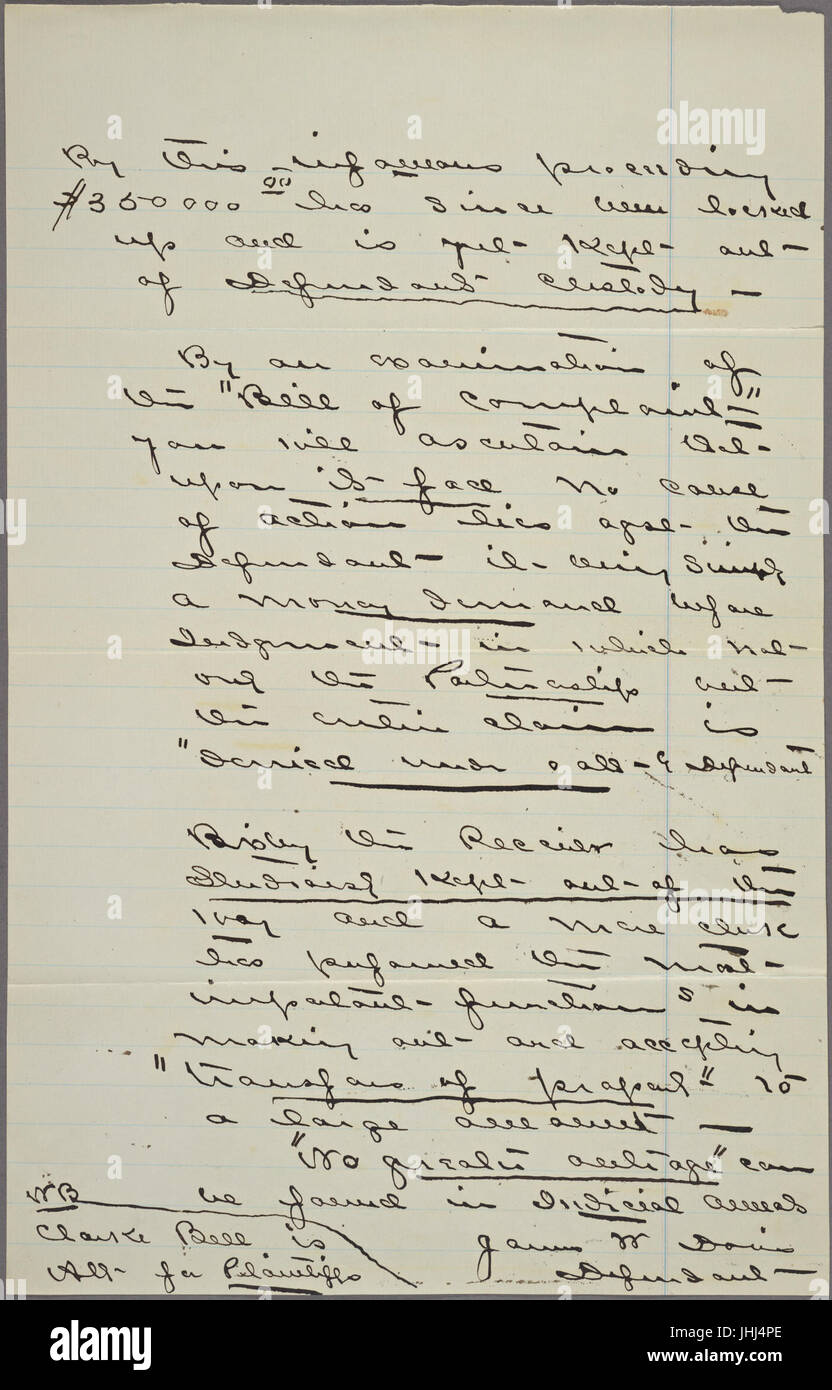 By this infamous proceeding
$350000 00 has since been locked
up and is yet kept out
of Defendant Custody —
By an examination of
the "Bill of Complaint"
you will ascertain that
upon its face no cause
of action lies agst the
Defendant it being simply
a money demand before
Judgment in which not
only the Partnership but
the entire claim is
"denied under oath" Defendant
Bixby the Receiver has
Studiously kept out of the
way and a mere clerk
has performed the most
important functions in
making out and accepting
"transfers of property" to
a large amount —
"No greater outrage" can
be found in Judicial annals
James W Davis
Defendant
NB
Clarke Bell is
Att for Plaintiffs
alamy
a
alamy stock photo
JHJ4PE
www.alamy.com